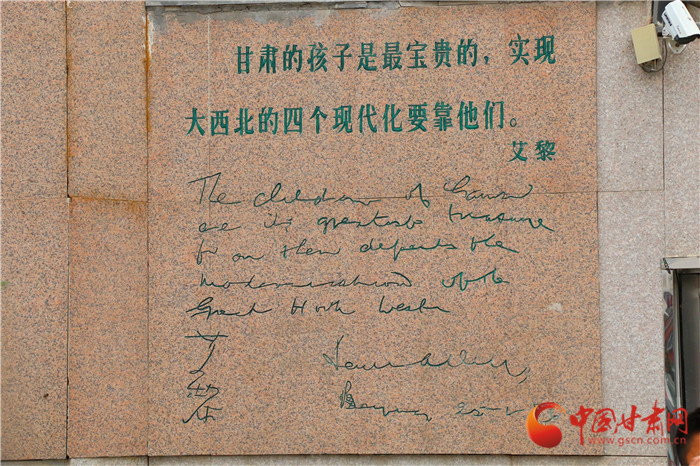 甘肃的孩子是最宝贵的，实现
大西北的四个现代化要靠他们。
艾黎
The children of Gansu
are its greatest treasure
for on them depends the
modernisation of the
Great North West
Rewi Alley,
Beijing, 25
中国甘肃网
www.gscn.com.cn